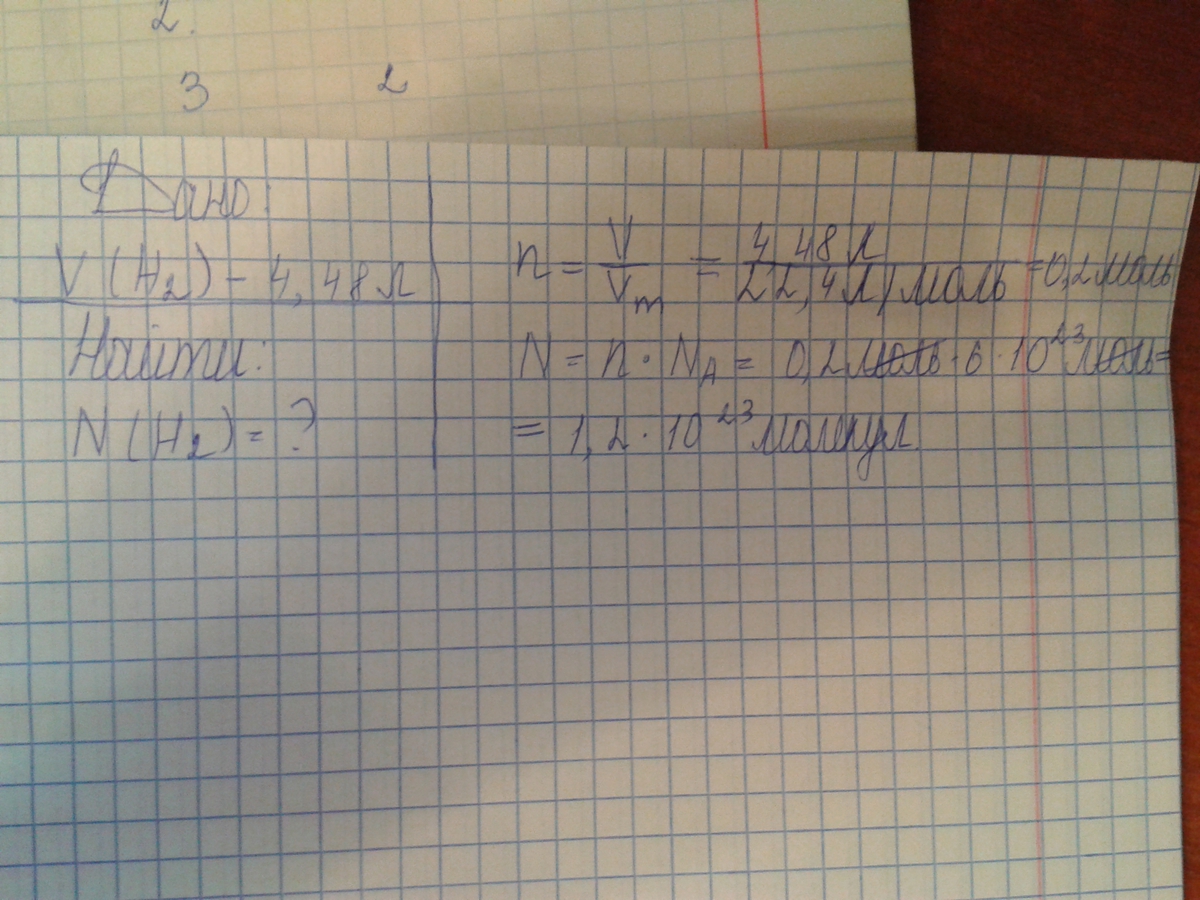 2.
3 2
Дано:
V (H₂) – 4,48 л
Найти:
N (H₂) = ?
n = V/Vm = 4,48 л/22,4 л/моль = 0,2 моль
N = n · NA = 0,2 моль · 6 · 10²³ моль =
= 1,2 · 10²³ молекул.